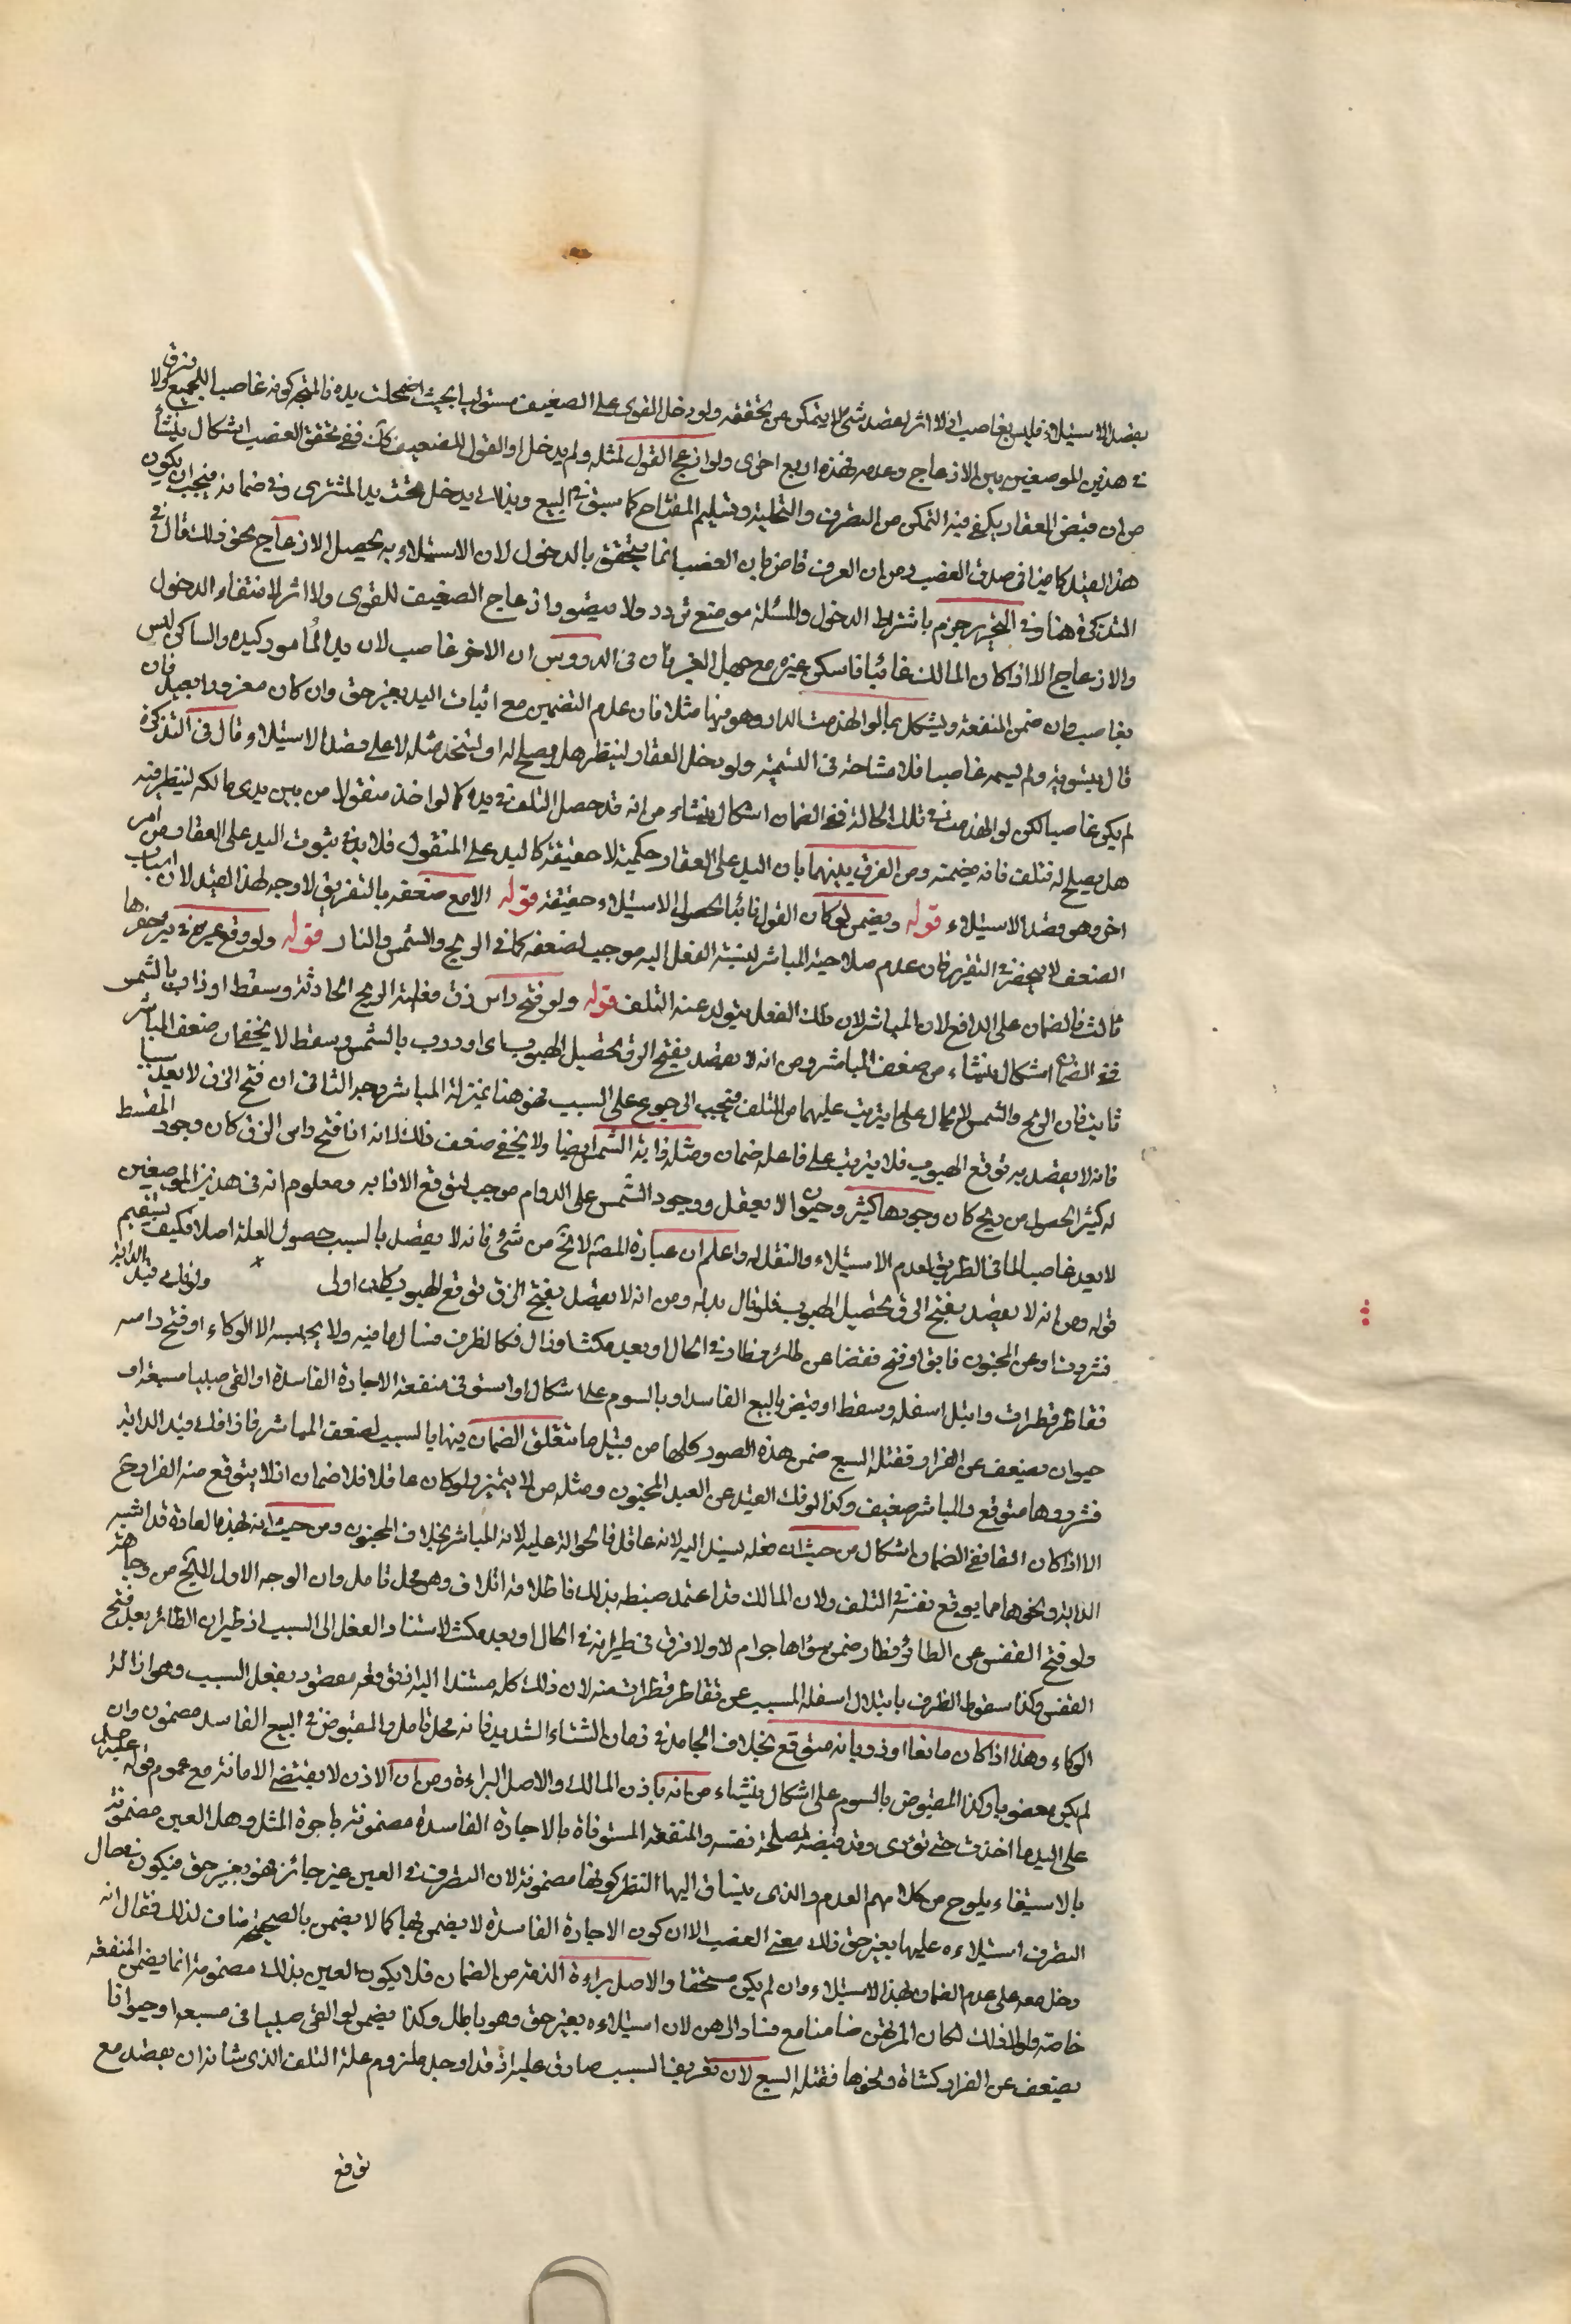 بقصد الاستيلاء فليس بغاصب اذ لا اثر لقصد شئ لا يتمكن من تحققه ولو دخل القوى على الضعيف مستوليا بحيث اضمحلت يده فالمتجه كونه غاصبا للجميع ولا فرق
في هذين الموضعين بين الازعاج وعدمه فهذه اربع اخرى ولو ازعج القوى لمثله ولم يدخل او القوى للضعيف كك ففي تحقق الغصب اشكال ينشأ
من ان قبض العقار يكفي فيه التمكن من التصرف والتخلية وتسليم المفتاح كما سبق في البيع وبذلك يدخل تحت يد المشترى وفي ضمانه فيجب ان يكون
هذا القيد كافيا في صدق الغصب ومن ان العرف قاض بان الغصب انما يتحقق بالدخول لان الاستيلاء به يحصل الازعاج بحق ذلك قال في
التذكرة هنا وفي التحرير جزم باشتراط الدخول والمسئلة موضع تردد ولا يتصور ازعاج الضعيف للقوى ولا اثر لانتفاء الدخول
والازعاج الا اذا كان المالك غائبا فاسكن غيره مع جهل الغير بان في الدروس ان الآخر غاصب لان يد المأمور كيده والساكن ليس
بغاصب وان ضمن المنفعة ويشكل بما لو انهدمت الدار وهو فيها مثلا فان عدم التضمين مع اثبات اليد بغير حق وان كان مغرورا بعيد فان
قال بتسويته ولم يسمه غاصبا فلا مشاحة في التسمية ولو دخل العقار لينظر هل يصلح له او ليتخذ مثله لا على قصد الاستيلاء قال في التذكرة
لم يكن غاصبا لكن لو انهدمت في تلك الحالة ففي الضمان اشكال ينشاء من انه قد حصل التلف في يده كما لو اخذ منقولا من بين يدى مالكه لينظر فيه
هل يصلح له فتلف فانه يضمنه ومن الفرق بينهما بان اليد على العقار حكمية لا حقيقة كاليد على المنقول فلا بد في ثبوت اليد على العقار من امر
اخر وهو قصد الاستيلاء قوله ويضمن لو كان القوى نائبا لحصول الاستيلاء حقيقة قوله الا مع ضعفه بالتفريق لا وجه لهذا القيد لان اسباب
الضعف لا تنحصر في التغرير فان عدم صلاحية المباشر لنسبة الفعل اليه موجب لضعفه كما في الريح والشمس والنار قوله ولو وقع غيره في بئر حفرها
ثالث فالضمان على الدافع لان المباشر لان ذلك الفعل يتولد عنه التلف قوله ولو فتح راس زق فقلبته الريح الحادثة وسقط او ذاب بالشمس
ففي الضمان اشكال ينشاء من ضعف المباشر ومن انه لا يقصد بفتح الزق تحصيل الهبوب اى او ذوب بالشمس وسقط لا يخفى ان ضعف المباشر
ثابت فان الريح والشمس لا يحال عليهما يترتب عليهما من التلف فيجب الرجوع على السبب فهو هنا بمنزلة المباشر وجه الثاني ان فتح الزق لا يعد سببا
فانه لا يقصد به توقع الهبوب فلا يترتب على فاعله ضمان ومثله ذابة الشمس ايضا ولا يخفى ضعف ذلك لانه اذا فتح راس الزق كان وجود المقسط
له كثير الحصول من ريح كان وجودها كثير وحيوان لا يعقل ووجود الشمس على الدوام موجب لتوقع الاذابه ومعلوم انه في هذين الموضعين
لا يعد غاصبا لما في الظرف لعدم الاستيلاء والنقل له واعلم ان عبارة المصه لا تخ من شئ فانه لا يقصد بالسبب حصول العلة اصلا فكيف يستقيم
قوله ومن انه لا يقصد بفتح الزق تحصيل الهبوب فلو قال بدله ومن انه لا يقصد بفتح الزق توقع الهبوب لكان اولى ولو فك قيد الدابة
فشردت او عن المجنون فابق او فتح قفصا عن طائر فطار في الحال او بعد مكث او زال وكاء الظرف فسال ما فيه ولا يحبسه الا الوكاء او فتح راسه
فقاطر قطرات وابتل اسفله وسقط او قبض بالبيع الفاسد او بالسوم على اشكال او استوفى منفعة الاجارة الفاسدة او القى صبيا مسبعة او
حيوان يضعف عن الفرار فقتله السبع ضمن هذه الصور كلها من قبيل ما يتعلق الضمان فيها بالسبب لضعف المباشر فاذا فك قيد الدابة
فشرودها متوقع والمباشر ضعيف وكذا لو فك القيد عن العبد المجنون ومثله من لا يتميز ولو كان عاقلا فلا ضمان اذ لا يتوقع منه الفرار وتح
الا اذا كان ابقا ففي الضمان اشكال من حيث ان فعله يسند اليه لانه عاقل فالحوالة عليه لانه المباشر بخلاف المجنون ومن حيث انه بهذه العادة قد اشبه
الدابة ونحوها مما يوقع نفسه في التلف ولان المالك قد اعتمد ضبطه بذلك فاطلاقه اتلاف وهو محل تامل وان الوجه الاول لا يخ من وجاهة
ولو فتح القفص عن الطائر فطار ضمن سؤاها جرام لا ولا فرق في طيرانه في الحال او بعد مكث لاستناد الفعل الى السبب اذ طيران الطائر بعد فتح
القفص وكذا سقوط الظرف بابتلال اسفله المسبب عن تقاطر قطرات منه لان ذلك كله مستند اليه اذ توقعه مقصود بفعل السبب وهو ازالة
الوكاء وهذا اذا كان مائعا او ذوبانه متوقع بخلاف الجامد في زمان الشتاء الشديد فانه محل تامل والمقبوض في البيع الفاسد مضمون وان
لم يكن مغصوبا وكذا المقبوض بالسوم على اشكال ينشاء من انه باذن المالك والاصل البراءة ومن ان الاذن لا يقتضى الامانة مع عموم قوله عليه
على اليد ما اخذت حتى تؤدى وقد قبضه لمصلحة نفسه والمنفعة المستوفاة بالاجارة الفاسدة مضمونة باجرة المثل وهل العين مضمونة
بالاستيفاء يلوح من كلامهم العدم والذى ينساق اليه النظر كونها مضمونة لان التصرف في العين غير جائز فهو بغير حق فيكون في حال
التصرف استيلاءه عليها بغير حق وذلك معنى الغصب الا ان كون الاجارة الفاسدة لا يضمن بها كما لا يضمن بالصحيحة مناف لذلك فيقال انه
دخل معه على عدم الضمان بهذا الاستيلاء وان لم يكن مستحقا والاصل براءة الذمة من الضمان فلا يكون العين بذلك مضمونة انما يضمن المنفعة
خاصة ولولا ذلك لكان المرتهن ضامنا مع فساد الرهن لان استيلاءه بغير حق وهو باطل وكذا يضمن لو القى صبيا في مسبعة او حيوانا
يضعف عن الفرار كشاة ونحوها فقتله السبع لان تعريف السبب صادق عليه اذ قد اوجد ملزوم علة التلف الذى شانه ان يقصد مع
توقع